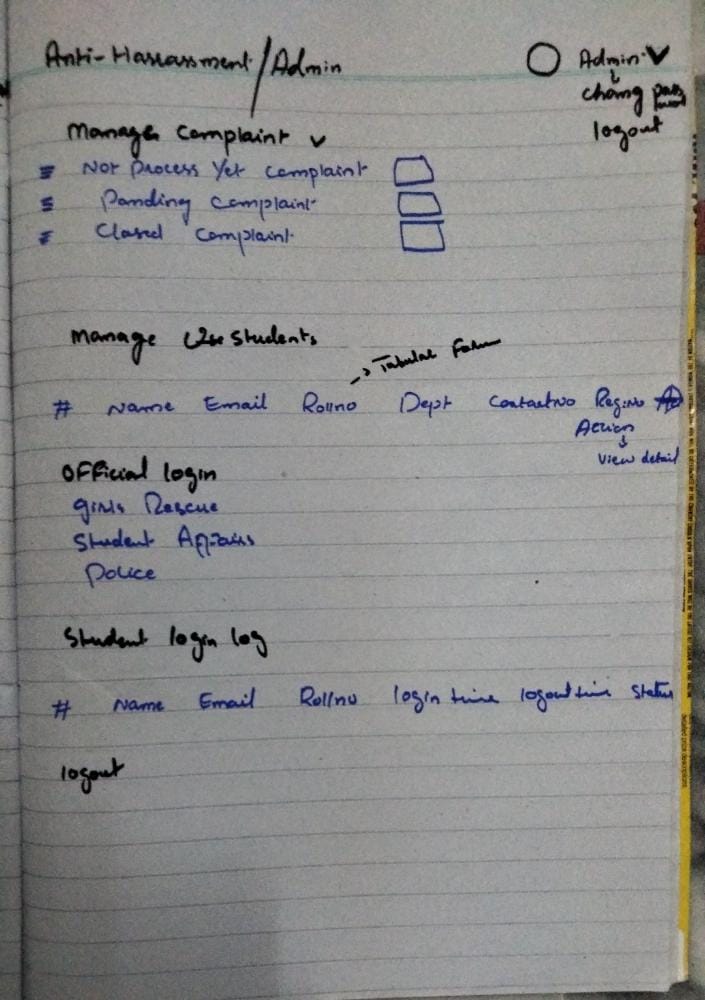 Anti-Harassment / Admin
Admin
Chang pass
word
logout
Manages Complaint
Not Process Yet Complaint
Panding Complaint
Closed Complaint
Manage Students
Tabular Form
# Name Email Rollno Dept ContactNo Reg:No
Action
View detail
Official login
girls Rescue
Student Affairs
Police
Student login log
# Name Email Rollno login time logout time Status
logout